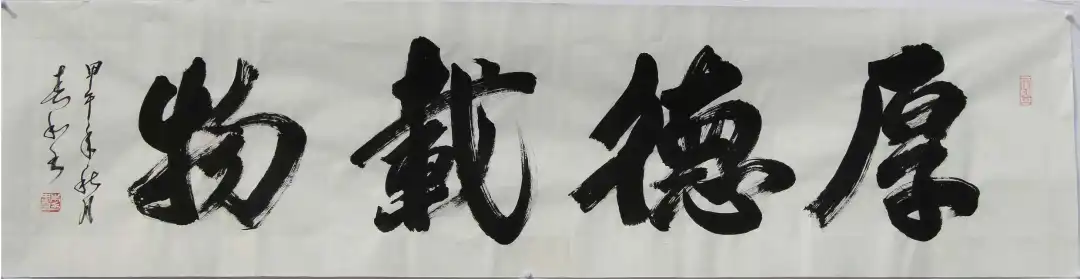 厚德載物
甲午年秋月